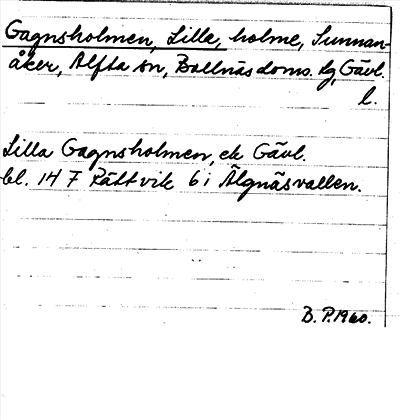 Gagnsholmen, Lilla, holme, Sunnan-
åker, Alfta sn, Bollnäs doms. tg, Gävl.
l.
Lilla Gagnsholmen, ek Gävl.
bl. 147 Rättvik 6i Älgnäsvallen.
B. P. 1960.